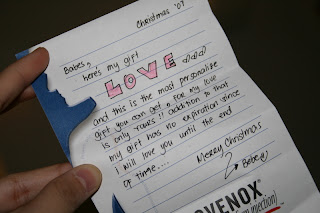 Christmas '07
Babes,
here's my gift
LOVE
and this is the most personalize
gift you can get, for my love
is only yours!! addition to that
my gift has no expiration since
i will love you until the end
of time....
Merry Christmas
Bebe
OVENOX
injection)